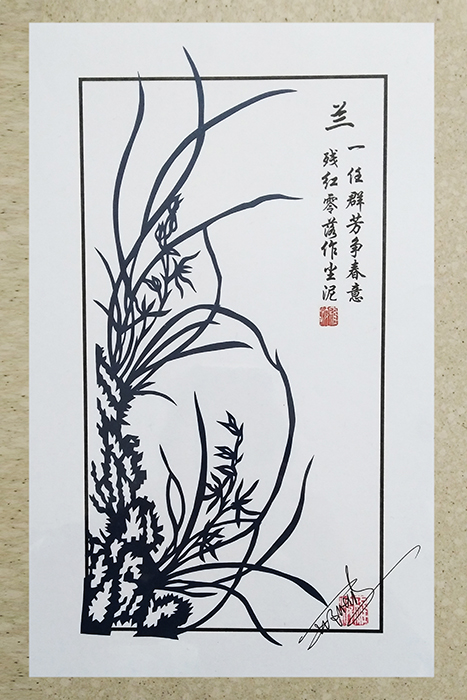 兰
一任群芳争春意
残红零落作尘泥